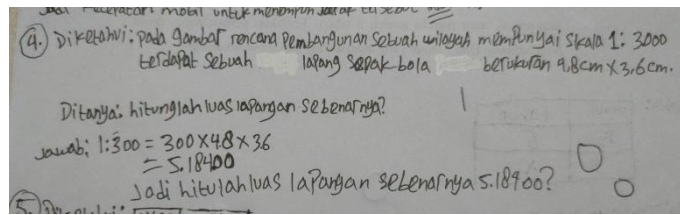 Jadi kecepatan mobil untuk menempuh jarak
4. Diketahui: pada gambar rencana Pembangunan Sebuah wilayah mempunyai Skala 1: 3000
terdapat Sebuah lapang sepak bola berukuran 9,8cm X 3,6cm.
Ditanya: hitunglah luas lapangan Sebenarnya?
Jawab: 1:300 = 300 X 48 X 36
= 5.18400
Jadi hitulah luas lapangan sebenarnya 5.18400?
5.